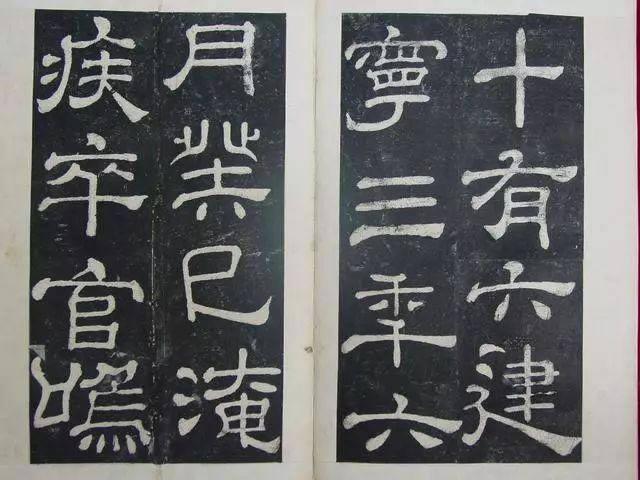 十有六建
寧三年六
月癸巳淹
疾卒官嗚